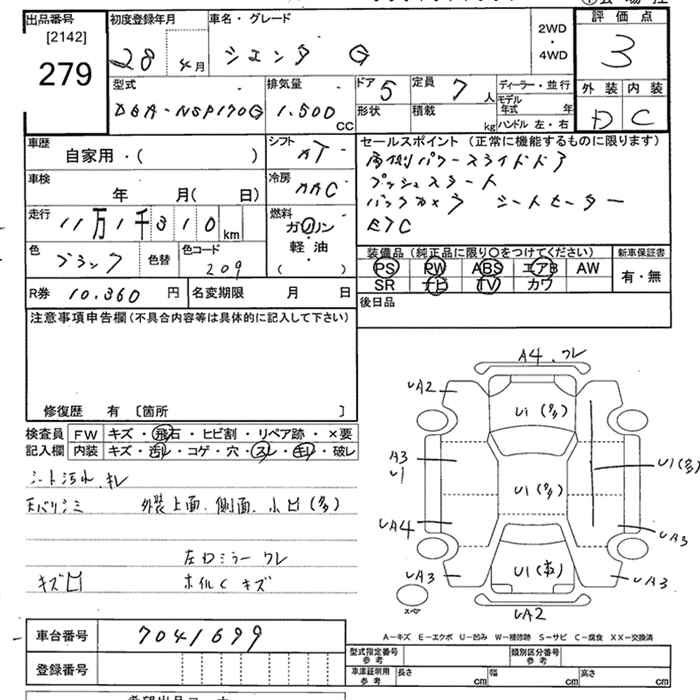 出品番号
[2142]
279
初度登録年月
28 4月
車名・グレード
シエンタ G
2WD
・
4WD
評価点
3
外装 内装
D C
型式
DBA-NSP170G
排気量
1.500 CC
ドア 5
形状
定員 7 人
積載 kg
ディーラー・並行
モデル年式 年
ハンドル 左・右
車歴
自家用・( )
シフト
AT
車検
年 月( 日)
冷房
AAC
走行
11万1千310 km
燃料
ガソリン
軽・油
( )
色
ブラック
色替
色コード
209
R券 10.360 円
名変期限 月 日
セールスポイント (正常に機能するものに限ります)
両側パワースライドドア
プッシュスタート
バックカメラ シートヒーター
ETC
装備品 (純正品に限り〇をつけてください)
PS PW ABS エアB AW
SR ナビ TV カワ
新車保証書
有・無
後日品
注意事項申告欄 (不具合内容等は具体的に記入して下さい)
修復歴 有 [箇所 ]
検査員 記入欄
FW キズ・飛石・ヒビ割・リペア跡・×要
内装 キズ・汚レ・コゲ・穴・スレ・キレ・破レ
シート汚れ.キレ
天バリシミ 外装上面.側面.小凹(多)
左右ミラーワレ
キズ凹 ホイルCキズ
A4.ワレ
UA2
U1(多)
A3
U1
U1(多)
U1(多)
UA4
UA3
UA3
U1(多)
UA3
UA2
スペア
A-キズ E-エクボ U-凹み W-補修跡 S-サビ C-腐食 XX-交換済
車台番号 7041699
登録番号
型式指定番号 参考
類別区分番号 参考
車庫証明用 参考
長さ cm 幅 cm 高さ cm